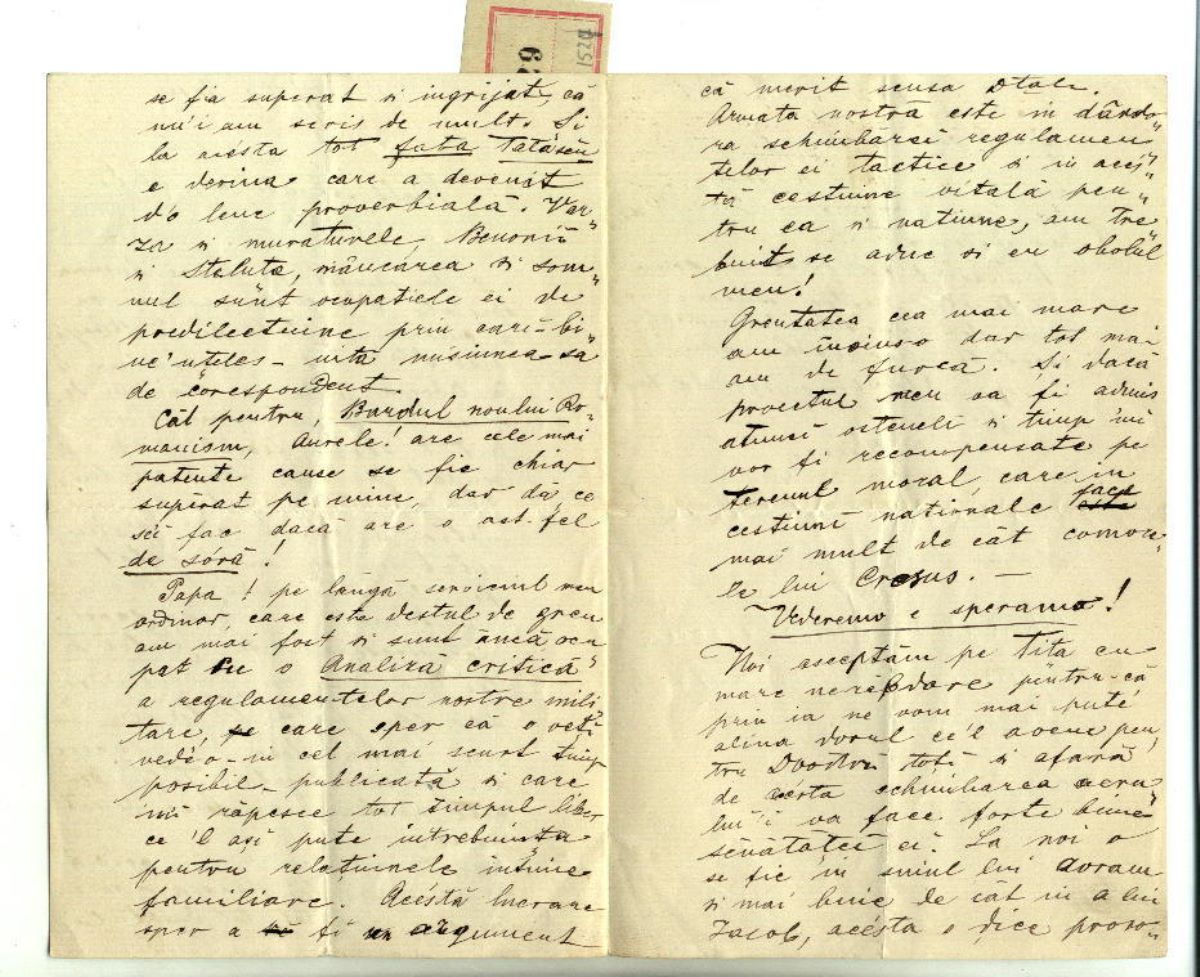 1520
se fia superat si ingrijat, că
nu'i am scris de mult. Și
la acésta tot fata Tatăseu
e de vina care a devenit
d'o lene proverbială. Var„
za si muraturele, Benonii
si Steluta, mâncarea si som„
nul sŭnt ocupatiele ei de
predilectiune prin cari-bi„
ne'nțeles- uită misiunea sa
de corespondent.
Căt pentru, Bardul noului Ro-
manism, Aurele! are cele mai
patente cause se fie chiar
supĕrat pe mine, dar dă, ce
sĕ fac dacă are o ast-fel
de sóră!
Papa! pe lăngă serviciul meu
ordinar, care este destul de greu
am mai fost si sunt ăncă ocu
pat cu o Analiză critică
a regulamentelor nostre mili
tare, pe care sper că o veți
vedé o-in cel mai scurt timp
posibil- publicată si care
mĭ răpesce tot timpul liber
ce 'l ași pute intrebuința
pentru relațiunele intime
familiare. Acéstă lucrare
sper a fi un argument
că merit scusa Dtale.
Armata nostră este in dărdo„
ra schimbărei regulamen„
telor ei tactice si in aces„
tă cestiune vitală pen„
tru ea si natiune, am tre„
buit se aduc si eu obolul
meu!
Greutatea cea mai mare
am învinso dar tot mai
am de furcă. Și dacă
proectul meu va fi admis
atunci osteneli si timp 'mi
vor fi recompensate pe
terenul moral, care in
cestiuni nationale face
mai mult de căt comore„
le lui Cresus. —
Vederemo e speramo!
Noi asceptăm pe Tita cu
mare nerĕbdare pĕntru-că
prin ia ne vom mai puté
alina dorul ce'l avem pen„
tru Dvostră toți si afară
de acésta schimbarea aeru„
lui 'i va face forte bine
sĕnatăței ei. La noi o
se fie in sinul lui Avram
si mai bine de căt in a lui
Iacob, acésta o dice proro„